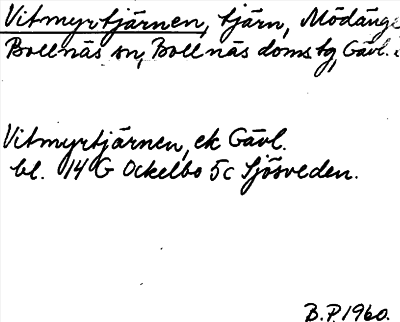 Vitmyrtjärnen, tjärn, Mödänge
Bollnäs sn, Bollnäs doms tg, Gävl.
Vitmyrtjärnen, ek Gävl.
bl. 14 G Ockelbo 5c Sjösveden.
B.P. 1960.